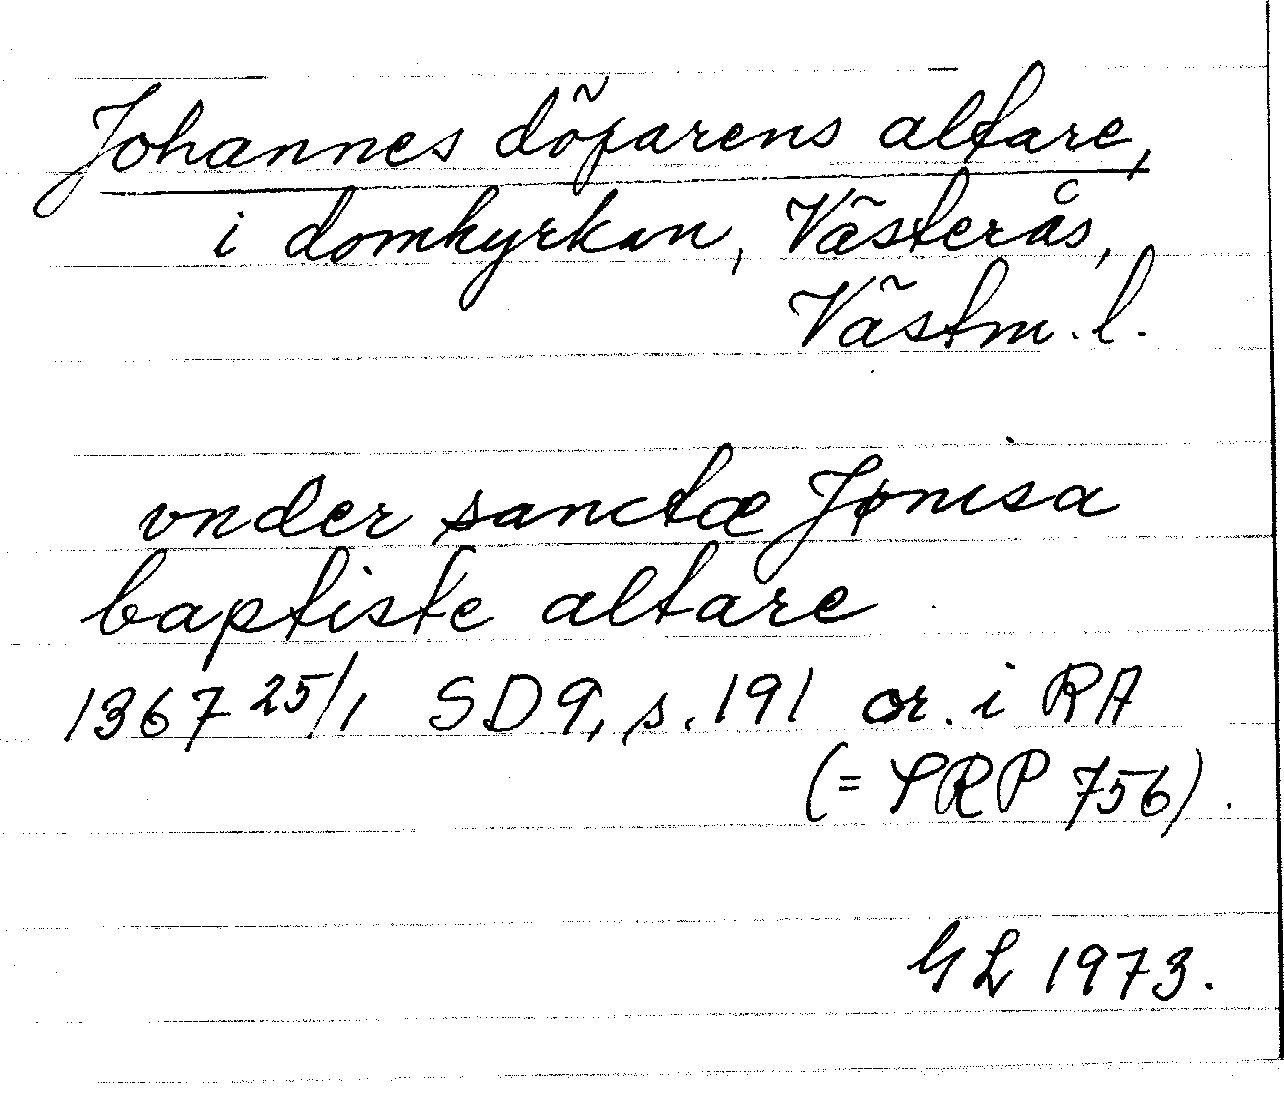 Johannes döparens altare,
i domkyrkan, Västerås,
Västm. l.
vnder sanctæ Jønisa
baptiste altare
1367 25/1 SD 9, s. 191 or. i RA
(= SRP 756).
GL 1973.